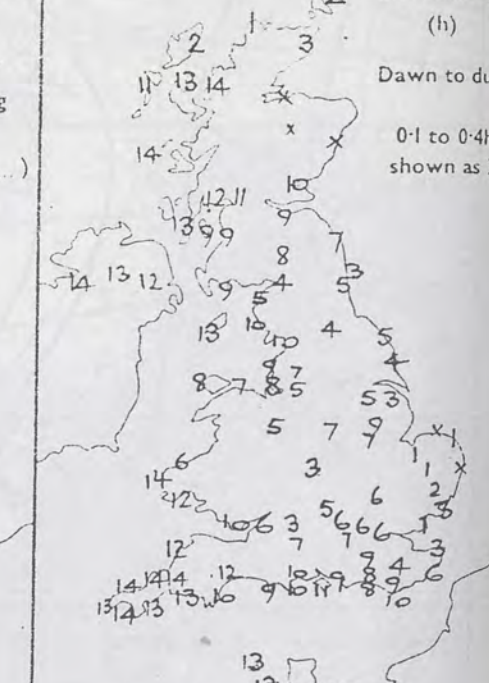 (h)
Dawn to du
0·1 to 0·4h
shown as
g
...)
2
1
3
2
11 13 14
x
x
x
14
10
12 11
9
13 9 9
7
8
3
14 13 12
9
4
5
5
13
10
10
4
5
4
9
7
8 7 8 5
5 3
9
7
5
7
x 1
1
1
6
3
x
14
12
6
2
3
5
10 6 3
6 6 6
1
7
7
12
3
9
4
6
14 14 14
12
10
9
8
9
13 14 13
13
10
9
10
11
8
10
13
13